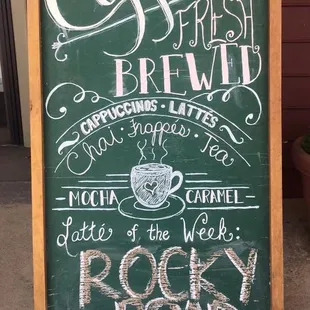 Coffee
FRESH
BREWED
CAPPUCCINOS · LATTES
Chai · frappes · Tea
MOCHA CARAMEL
Latté of the Week:
ROCKY
ROAD